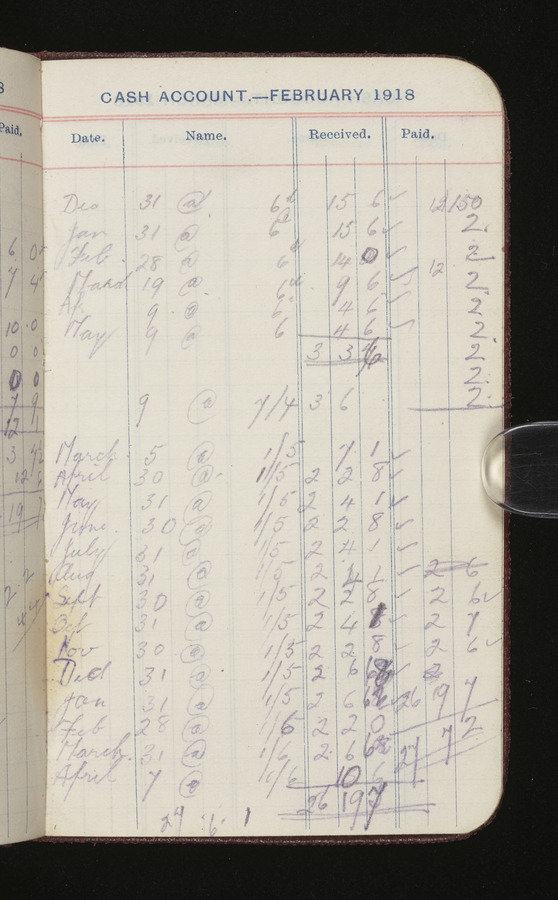 CASH ACCOUNT.—FEBRUARY 1918
Paid. Date. Name. Received. Paid.
Dec 31 @ 6d 15 6 ✓ 12/150
Jan 31 @ 6d 15 6 ✓ 2
Feb 28 @ 6d 14 0 ✓ 2
March 19 @ 6d 9 6 ✓ 12 2
Ap. 9 @ 6 4 6 ✓ 2
May 9 @ 6 4 6 ✓ 2
3 3 6 2
2
9 @ 7/4 3 6 2
March 5 @ 1/5 7 1 ✓
April 30 @ 1/5 2 2 8 ✓
May 31 @ 1/5 2 4 1 ✓
June 30 @ 1/5 2 2 8 ✓
July 31 @ 1/5 2 4 1 ✓
Aug 31 @ 1/5 2 4 1 ✓ 2 6
Sept 30 @ 1/5 2 2 8 ✓ 2 6 ✓
Oct 31 @ 1/5 2 4 ✓ 2 7
Nov 30 @ 1/5 2 2 8 ✓ 2 6 ✓
Ded 31 @ 1/5 2 6
Jan 31 @ 1/5 2 6 26 19 7
Feb 28 @ 1/6 2 2 0 7 2
March 31 @ 1/6 2 6 6 27
April 7 @ 1/6 10 6
26 19 7
27 :6: 1